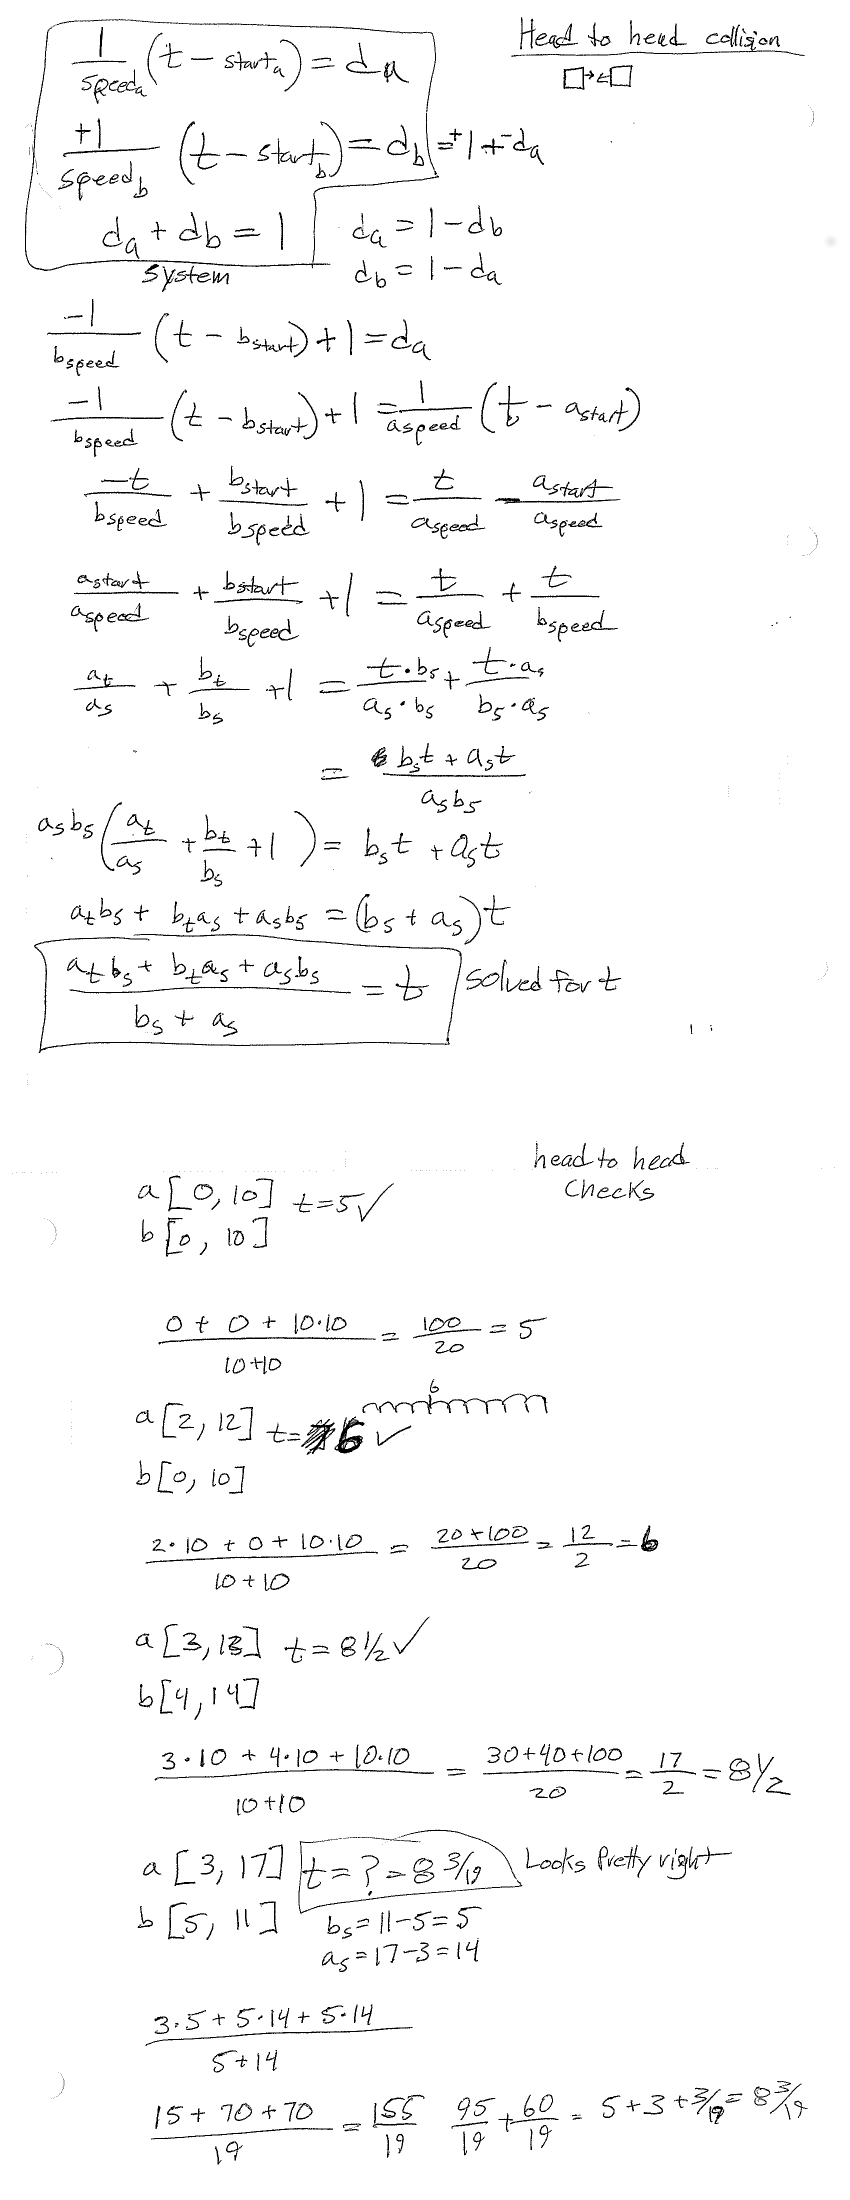 Head to head collision
□→←□
1/speed_a (t - start_a) = d_a
+1/speed_b (t - start_b) = d_b = +1 + -d_a
d_a + d_b = 1
d_a = 1 - d_b
system
d_b = 1 - d_a
-1/bspeed (t - bstart) + 1 = d_a
-1/bspeed (t - bstart) + 1 = 1/aspeed (t - astart)
-t/bspeed + bstart/bspeed + 1 = t/aspeed - astart/aspeed
astart/aspeed + bstart/bspeed + 1 = t/aspeed + t/bspeed
a_t/a_s + b_t/b_s + 1 = t·b_s/a_s·b_s + t·a_s/b_s·a_s
= b_s t + a_s t/a_s b_s
a_s b_s (a_t/a_s + b_t/b_s + 1) = b_s t + a_s t
a_t b_s + b_t a_s + a_s b_s = (b_s + a_s) t
a_t b_s + b_t a_s + a_s b_s/b_s + a_s = t solved for t
head to head
checks
a [0, 10] t = 5 ✓
b [0, 10]
0 + 0 + 10·10/10+10 = 100/20 = 5
6
a [2, 12] t = 6 ✓
b [0, 10]
2·10 + 0 + 10·10/10+10 = 20+100/20 = 12/2 = 6
a [3, 13] t = 8 1/2 ✓
b [4, 14]
3·10 + 4·10 + 10·10/10+10 = 30+40+100/20 = 17/2 = 8 1/2
a [3, 17] t = ? = 8 3/19 Looks Pretty right
b [5, 11] b_s = 11-5 = 5
a_s = 17-3 = 14
3·5 + 5·14 + 5·14/5+14
15 + 70 + 70/19 = 155/19 95/19 + 60/19 = 5 + 3 + 3/19 = 8 3/19